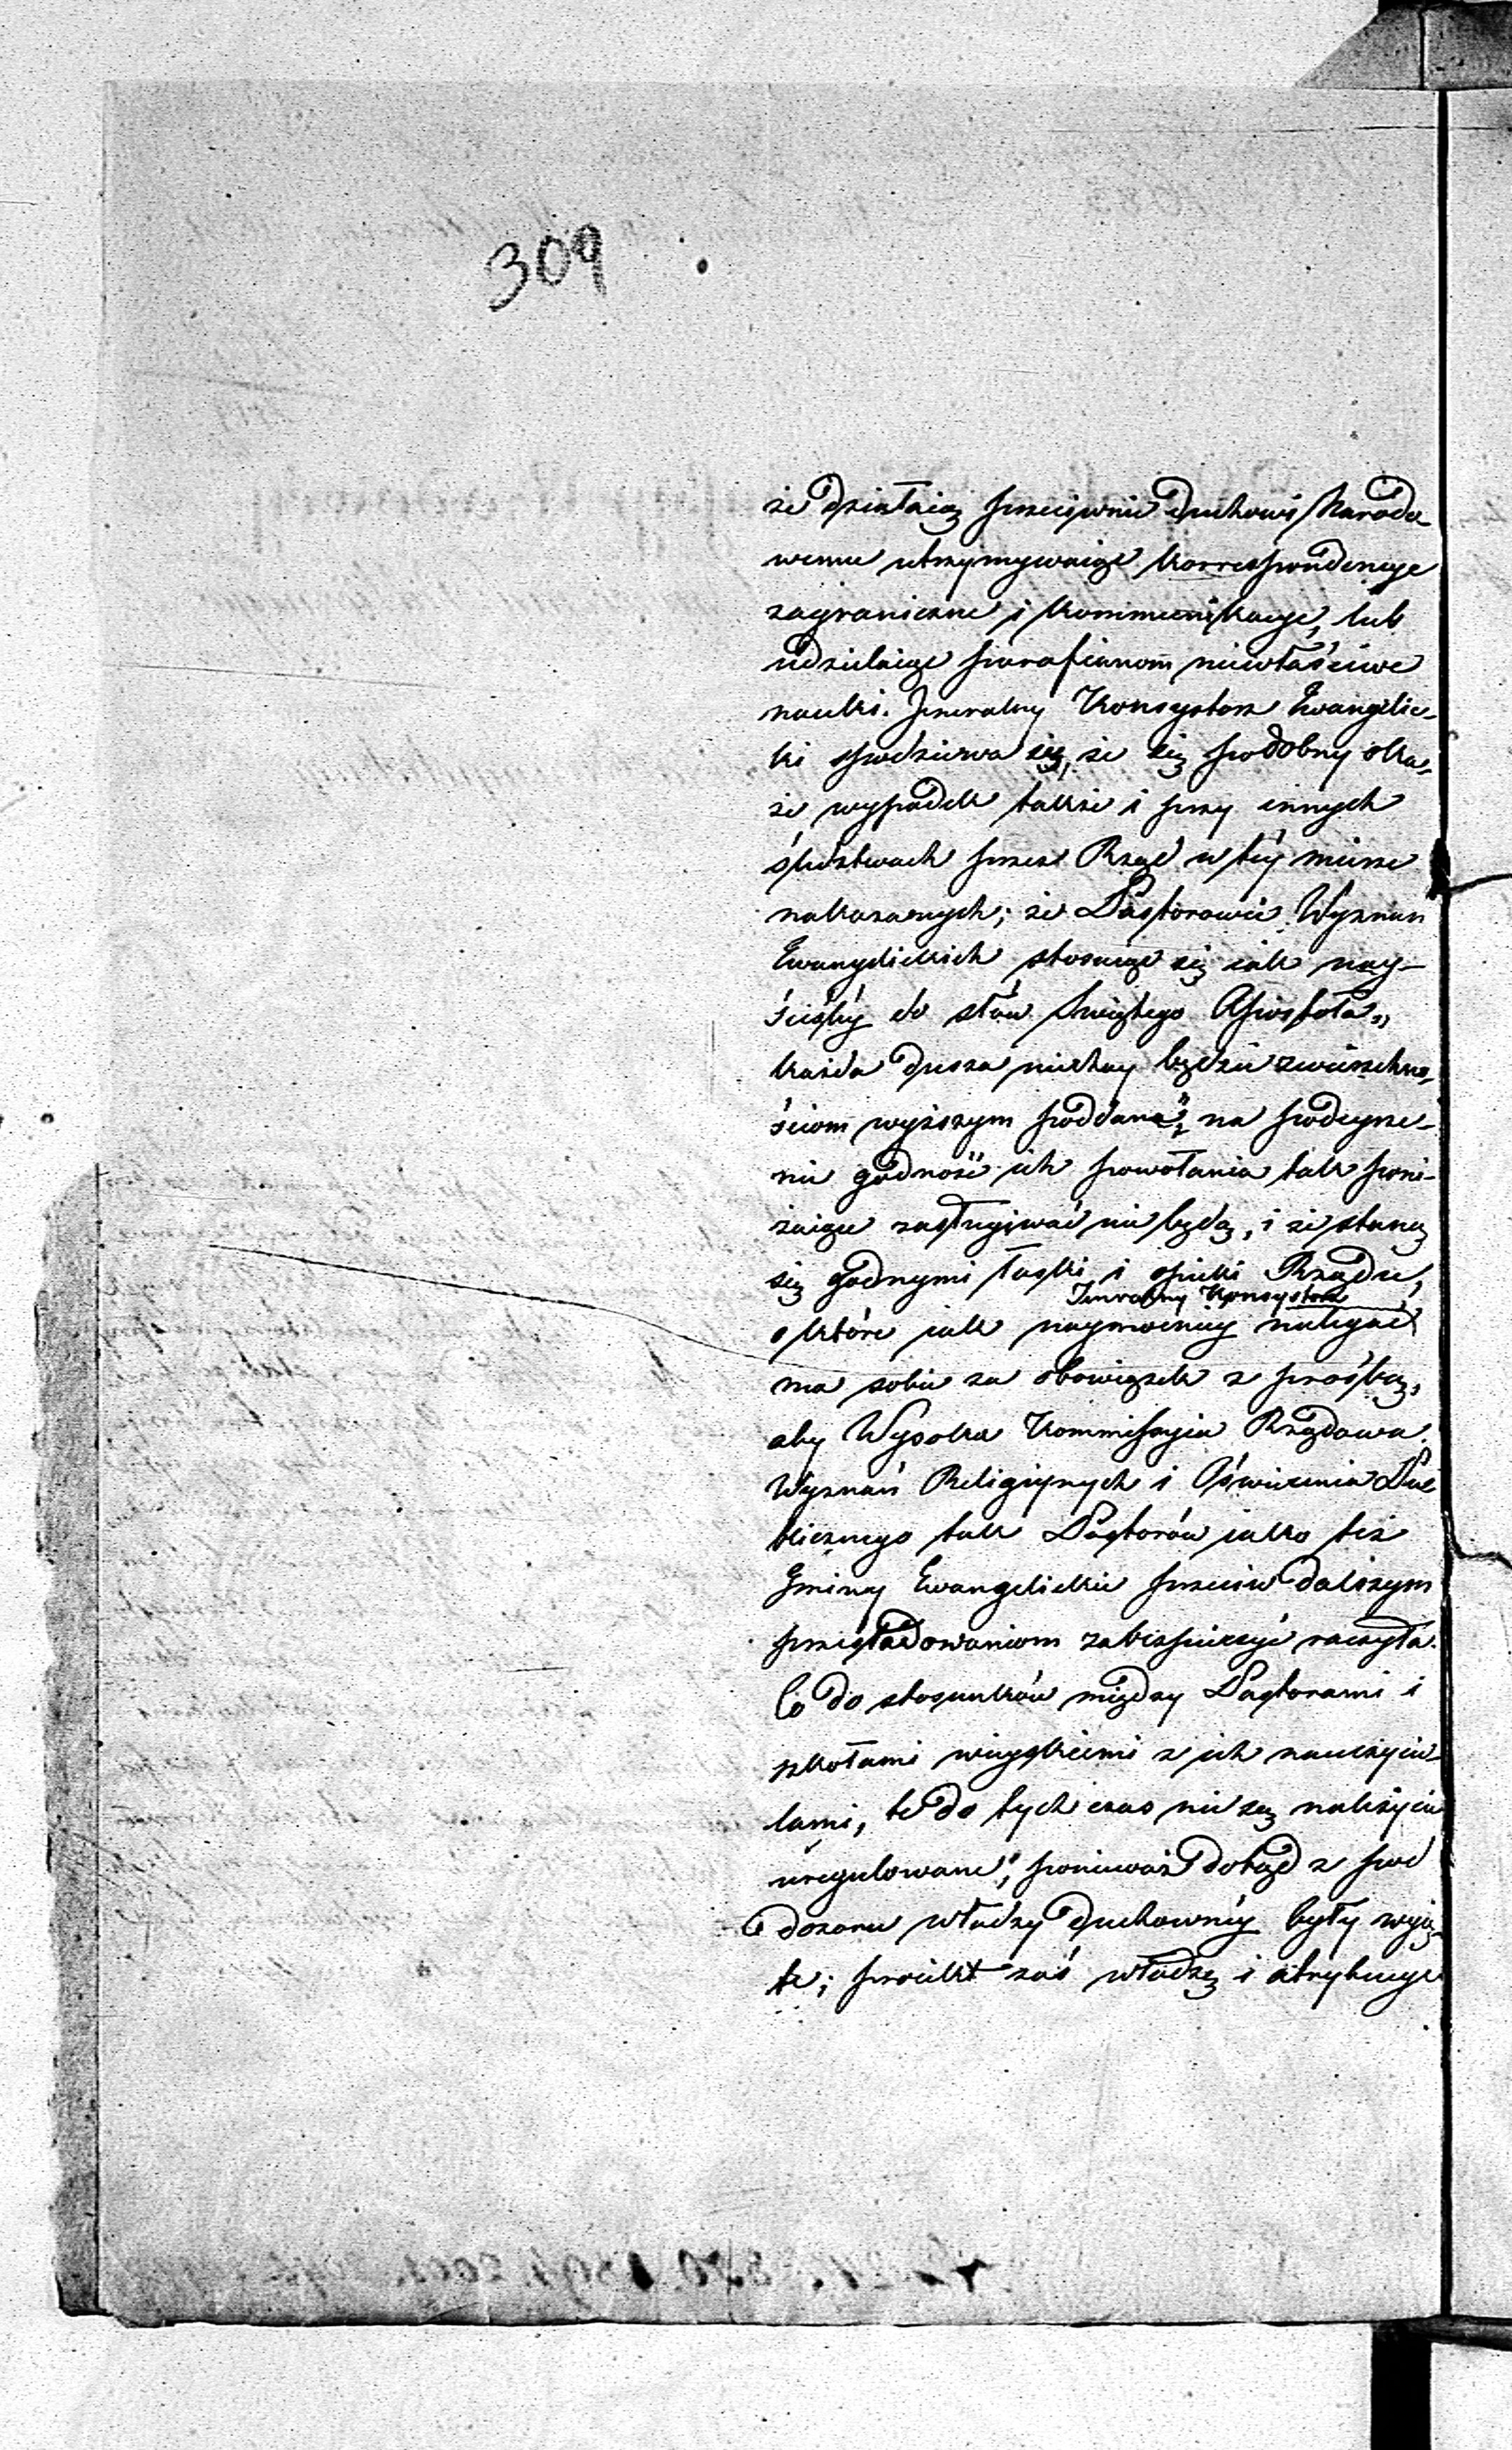 309
że działaią przeciwnie duchowi Narodo-
wemu utrzymywaiąc korrespondencye
zagraniczne i kommunikacye, lub
udzielaiąc parafianom niewłaściwe
nauki. Jeneralny Konsystorz Ewangelic-
ki spodziewa się, że się podobny oka-
że wypadek także i przy innych
śledztwach przez Rząd w téy mierze
nakazanych; że Pastorowie Wyznań
Ewangelickich stosuiąc się iak nay-
ściśléy do słów Świętego Apostoła „
każda dusza niechay będzie zwierzchno-
ściom wyższym poddana", na podeyrze-
nie godność ich powołania tak poni-
żaiące zasługiwać nie będą, i że staną
się godnymi łaski i opieki Rządu,
Jeneralny Konsystorz
o które iak naymocniéy nalegać
ma sobie za obowiązek z prośbą,
aby Wysoka Kommissyia Rządowa
Wyznań Religiynych i Oświecenia Pu-
blicznego tak Pastorów iako też
Gminy Ewangelickie przeciw dalszym
prześladowaniom zabezpieczyć raczyła.
Co do stosunków między Pastorami i
szkołami wieyskiemi z ich nauczycie-
lami, te do tych czas nie są należycie
uregulowane; ponieważ dotąd z pod
dozoru władzy duchownéy były wyię-
te; proiekt zaś władzę i atrybucye